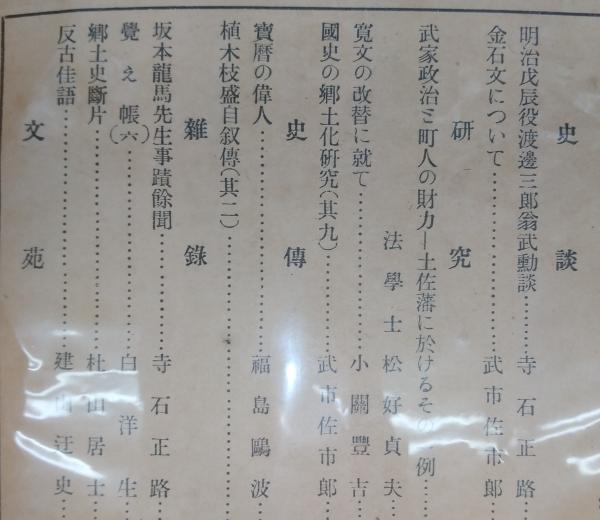 史談
明治戊辰役渡邊三郎翁武勳談………寺石正路
金石文について………………武市佐市郎
研究
武家政治と町人の財力―土佐藩に於けるその一例……
法學士 松好貞夫…
寬文の改替に就て………………小關豐吉…
國史の鄕土化硏究(其九)…………武市佐市郎
史傳
寶曆の偉人………………福島鷗波…
植木枝盛自叙傳(其二)………………
雜錄
坂本龍馬先生事蹟餘聞…………寺石正路…
覺え帳(六)………………白洋生…
鄕土史斷片………………杜山居士…
反古佳語………………建山迂史…
文苑